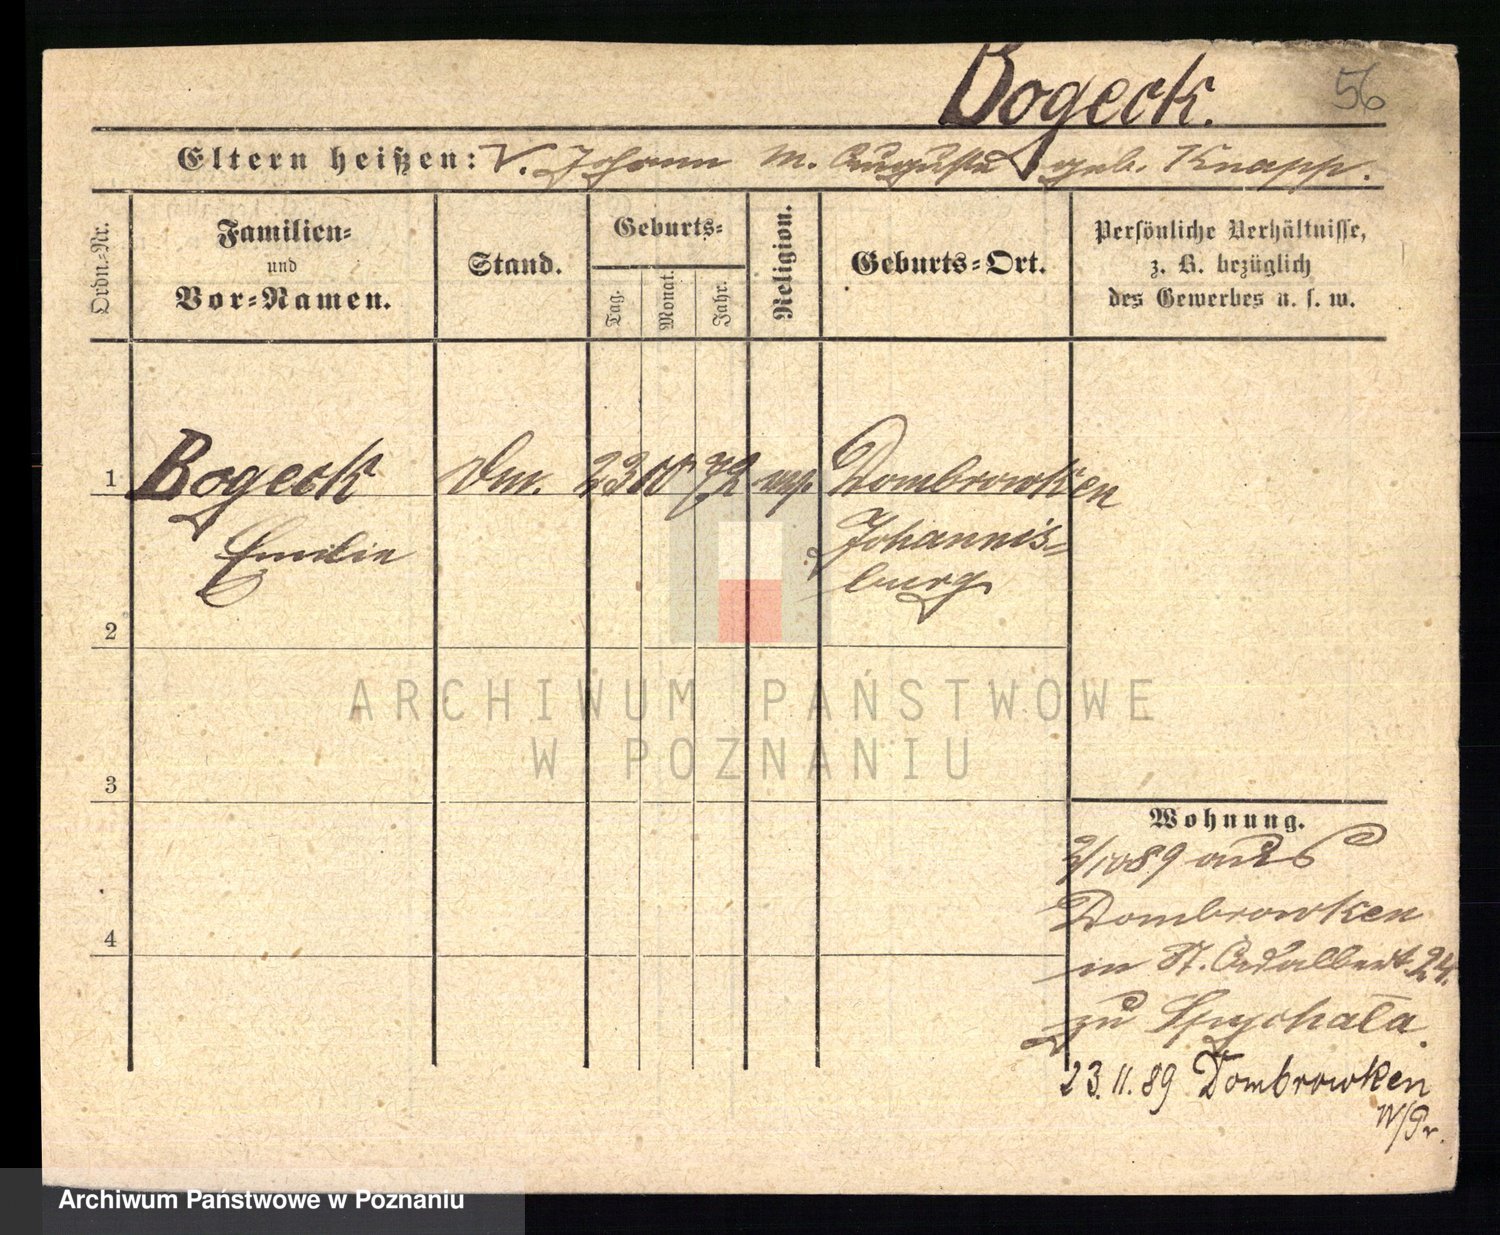 Bogeck.
56
Eltern heißen: V. Johann M. Auguste geb. Knapp.
Ordn.-Nr.
Familien-
und
Vor-Namen.
Stand.
Geburts-
Tag.
Monat.
Jahr.
Religion.
Geburts-Ort.
Persönliche Verhältnisse,
z. B. bezüglich
des Gewerbes u. s. w.
1 Bogeck 23 72 Dombrowken
Emilie
Johannis-
burg
2
ARCHIWUM PAŃSTWOWE
W POZNANIU
3
Wohnung.
2/10 89 aus
Dombrowken
in St. Adalbert 24.
zu Spychała.
4
23.11.89 Dombrowken
W/Pr.
Archiwum Państwowe w Poznaniu